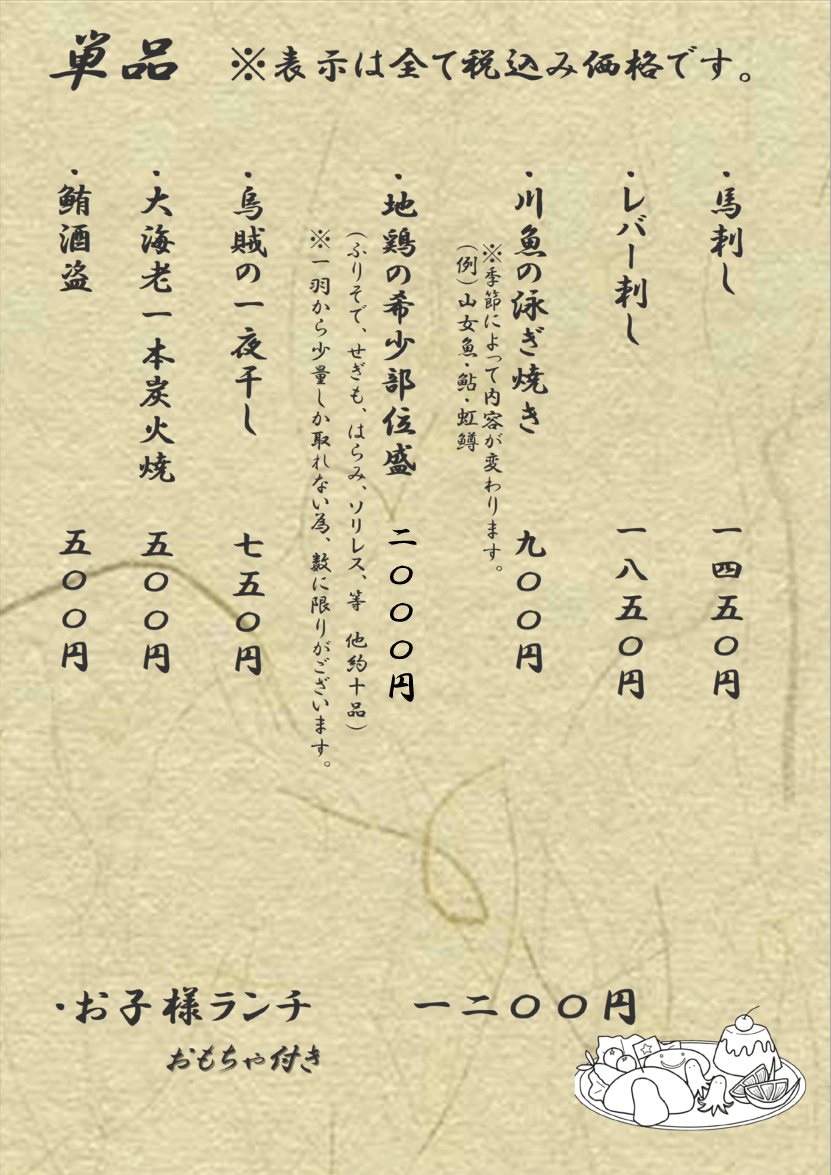 単品　※表示は全て税込み価格です。
・馬刺し　一四五〇円
・レバー刺し　一八五〇円
・川魚の泳ぎ焼き　九〇〇円
※季節によって内容が変わります。
（例）山女魚・鮎・虹鱒
・地鶏の希少部位盛　二〇〇〇円
（ふりそで、せぎも、はらみ、ソリレス、等　他約十品）
※一羽から少量しか取れない為、数に限りがございます。
・烏賊の一夜干し　七五〇円
・大海老一本炭火焼　五〇〇円
・鮪酒盗　五〇〇円
・お子様ランチ　一二〇〇円
おもちゃ付き